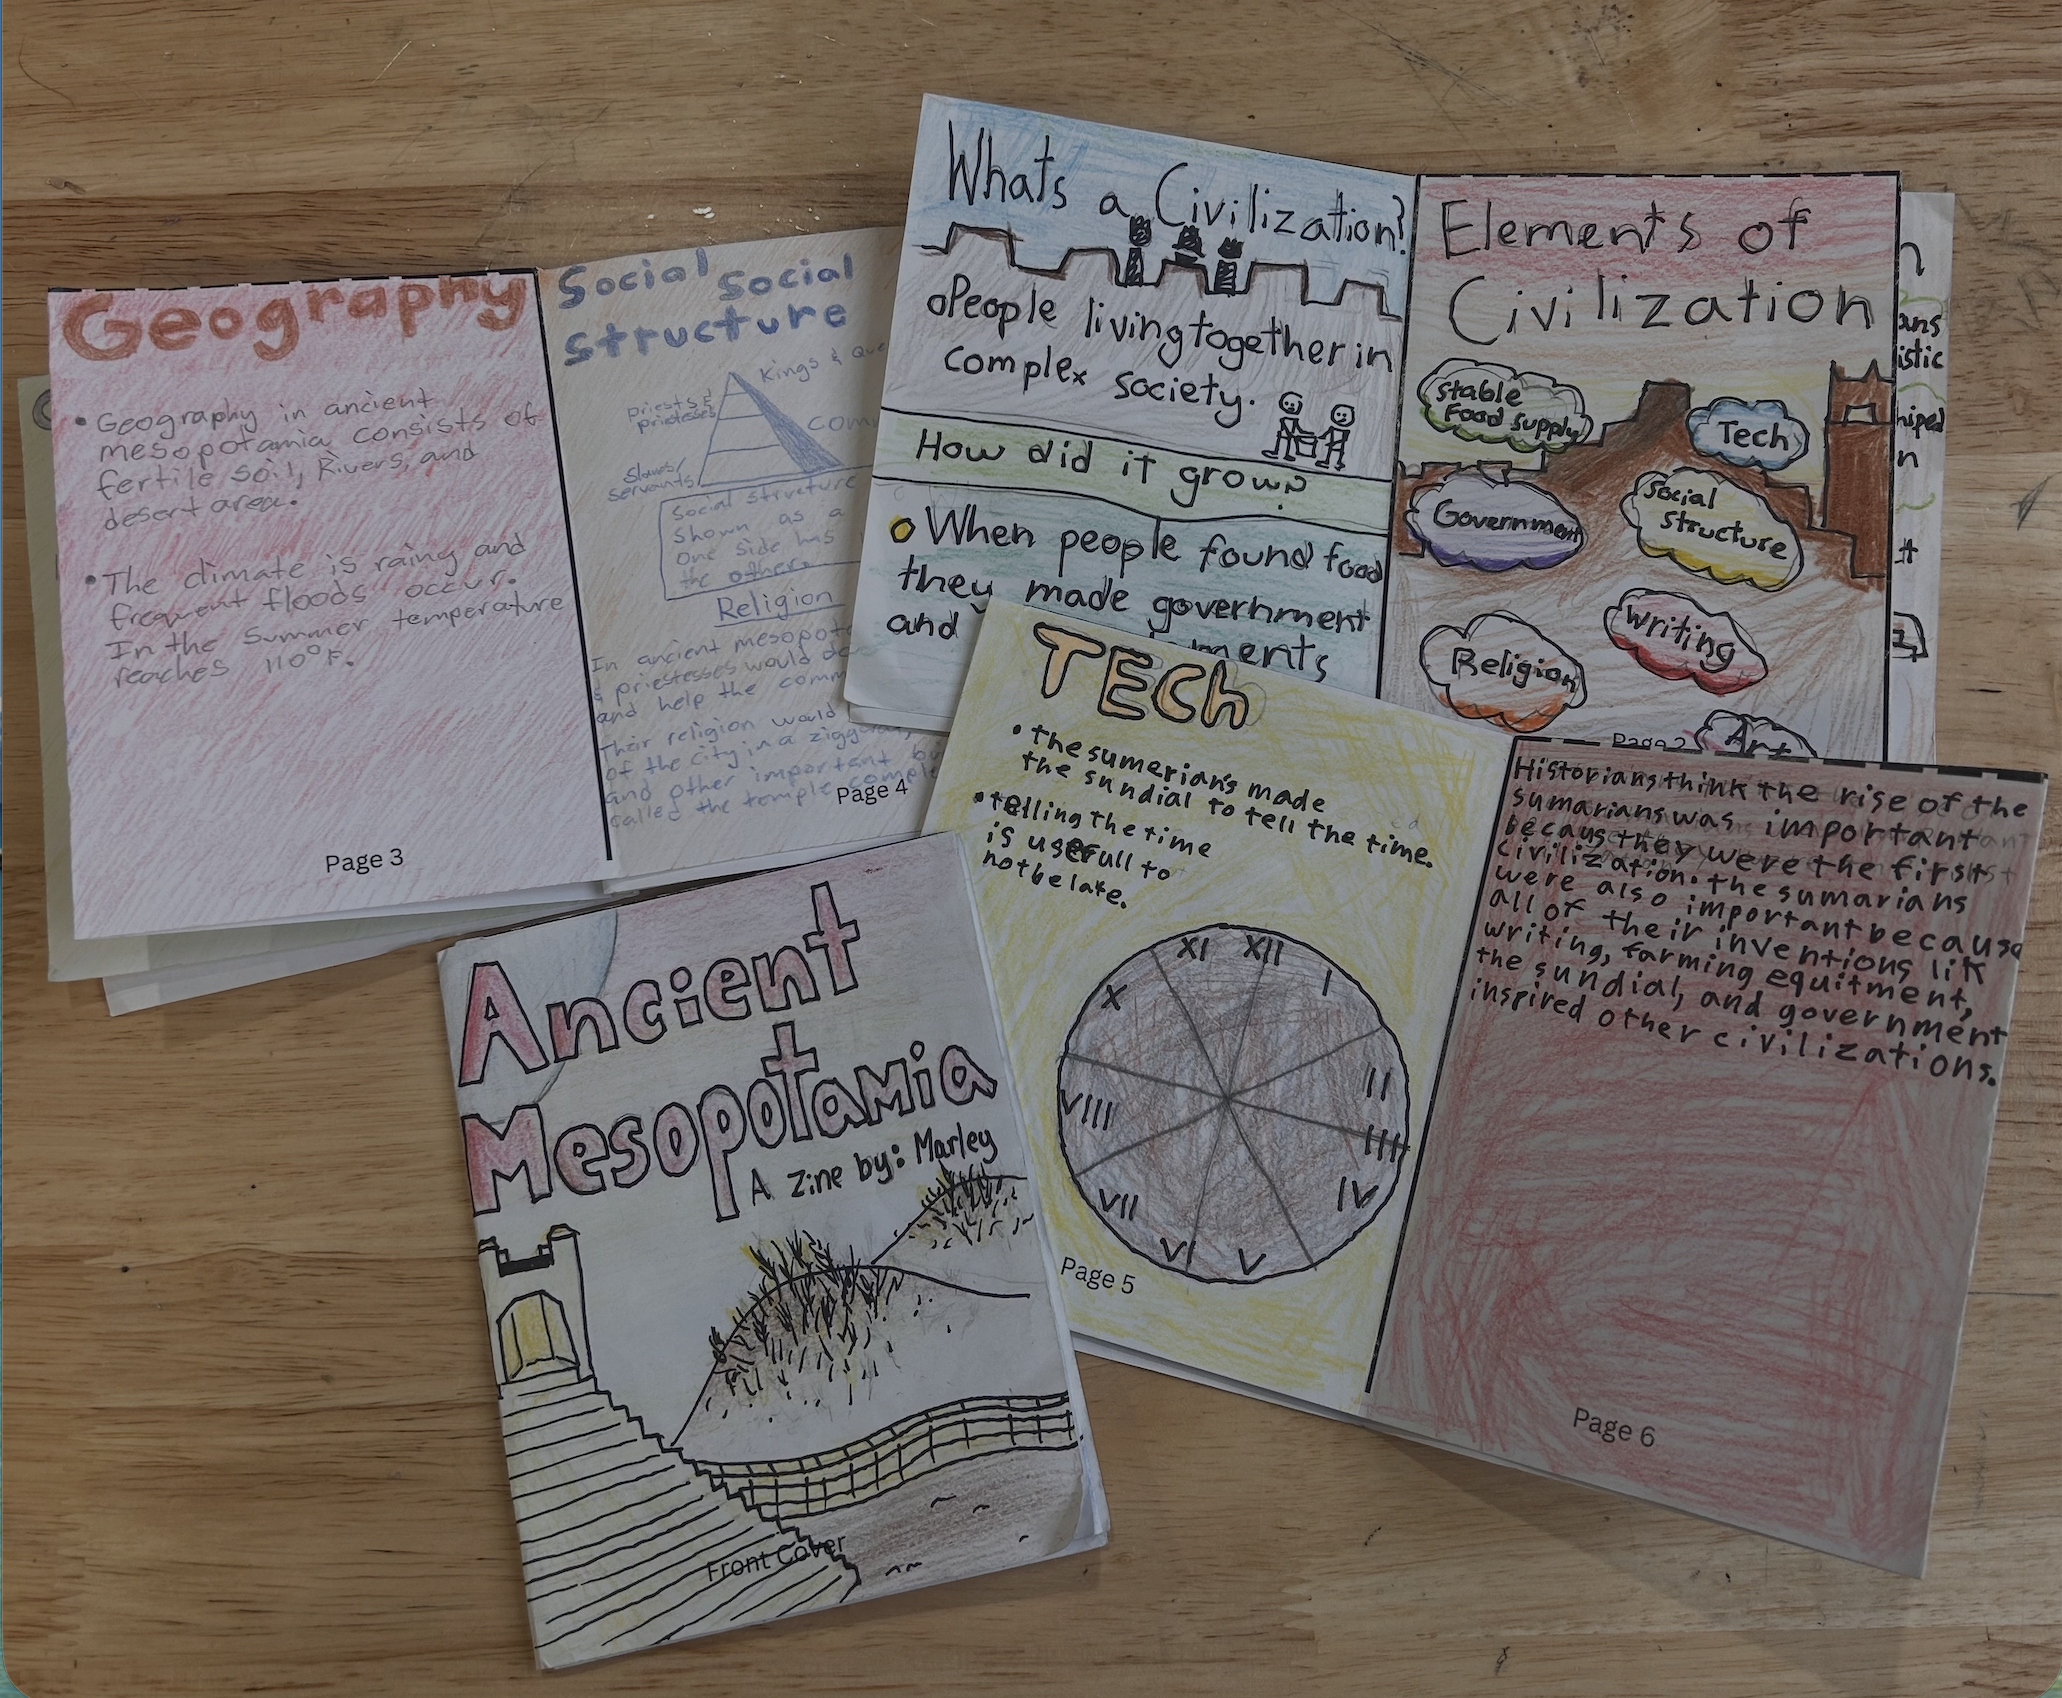 Geography
• Geography in ancient
mesopotamia consists of
fertile soil, Rivers, and
desert area.
• The climate is rainy and
frequent floods occur.
In the Summer temperature
reaches 110°F.
Page 3
Social Social
structure
Kings &
priests &
priestesses
com
slaves/
servants
Social structure
shown as a
one side has
the other.
Religion
In ancient
& priestesses would
and help the
Their religion would
of the city in a
and other important
called the temple
Page 4
Whats a Civilization?
People living together in
complex society.
How did it grow?
When people found food
they made government
and
ments
Elements of
Civilization
Stable
Food Supply
Tech
Government
Social
Structure
Writing
Religion
Art
Page 2
n
ans
istic
hiped
n
TECh
• the sumerian's made
the sundial to tell the time.
• telling the time
is usefull to
not be late.
XI XII I
X
II
VIII
IIII
IV
VII
VI V
Page 5
Historians think the rise of the
sumarians was important
becaus they were the first
civilization. the sumarians
were also important because
all of their inventions lik
writing, farming equitment,
the sundial, and government
inspired other civilizations.
Page 6
Ancient
Mesopotamia
A Zine by: Marley
Front Cover